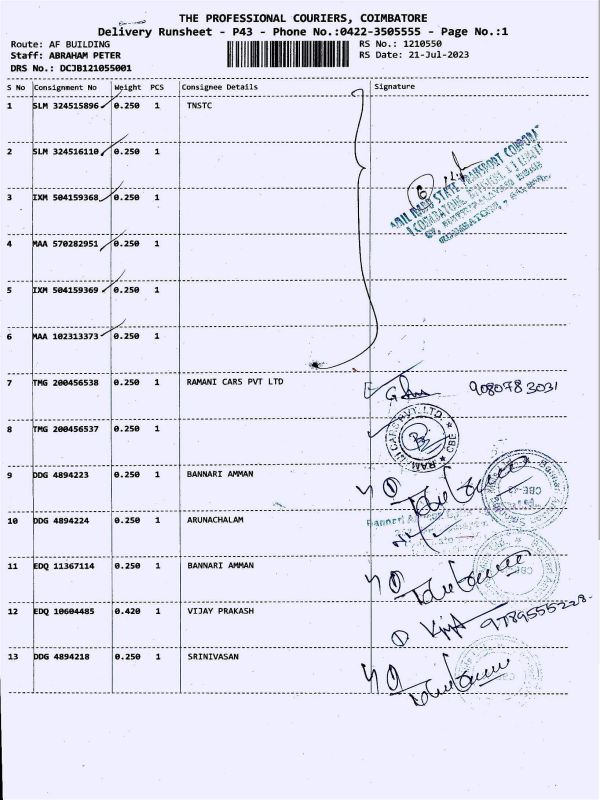 THE PROFESSIONAL COURIERS, COIMBATORE
Delivery Runsheet - P43 - Phone No.:0422-3505555 - Page No.:1
Route: AF BUILDING RS No.: 1210550
Staff: ABRAHAM PETER RS Date: 21-Jul-2023
DRS No.: DCJB121055001
S No Consignment No Weight PCS Consignee Details Signature
1 SLM 324515896 0.250 1 TNSTC
2 SLM 324516110 0.250 1
3 IXM 504159368 0.250 1
4 MAA 570282951 0.250 1
5 IXM 504159369 0.250 1
6 MAA 102313373 0.250 1
7 TMG 200456538 0.250 1 RAMANI CARS PVT LTD 9080783031
8 TMG 200456537 0.250 1
RAMANI CARS PVT. LTD. ★ CBE ★
9 DDG 4894223 0.250 1 BANNARI AMMAN
10 DDG 4894224 0.250 1 ARUNACHALAM
11 EDQ 11367114 0.250 1 BANNARI AMMAN
12 EDQ 10604485 0.420 1 VIJAY PRAKASH 9789555228
13 DDG 4894218 0.250 1 SRINIVASAN